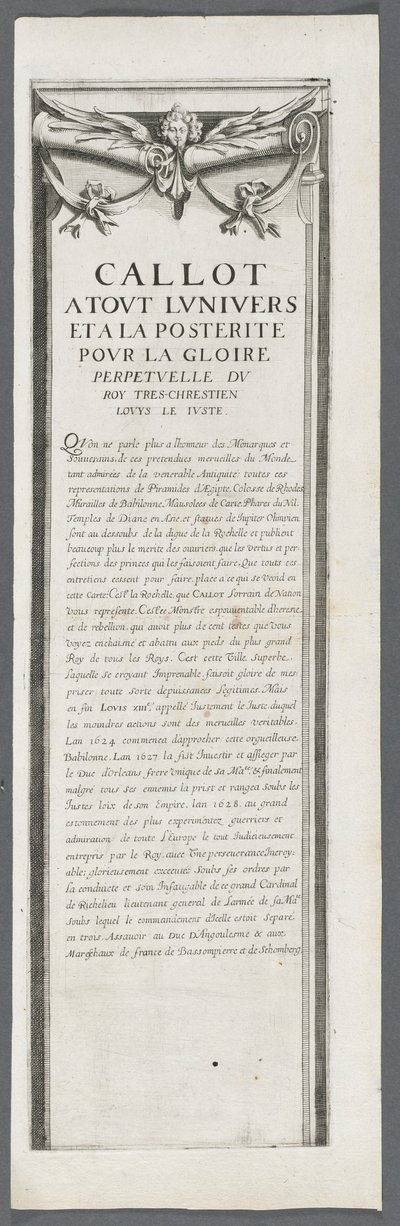 CALLOT
A TOVT LVNIVERS
ET A LA POSTERITE
POVR LA GLOIRE
PERPETVELLE DV
ROY TRES-CHRESTIEN
LOVYS LE IVSTE.
QVon ne parle plus a lhonneur des Monarques et
Souuerains, de ces pretendues merueilles du Monde
tant admirées de la venerable Antiquité: toutes ces
representations de Piramides d'Ægipte, Colosse de Rhodes
Murailles de Babilonne, Mausolees de Carie, Phares du Nil
Temples de Diane en Asie, et statues de Iupiter Olimpien
sont au dessoubs de la digue de la Rochelle et publient
beaucoup plus le merite des ouuriers, que les vertus et per-
fections des princes qui les faisoient faire, Que touts ces
entretiens cessent pour faire place a ce qui se void en
cette Carte: Cest la Rochelle, que CALLOT Lorrain de Nation
vous represente. Cest ce Monstre espouuentable dheresie
et de rebellion, qui auoit plus de cent testes que vous
voyez enchaisné et abattu aux pieds du plus grand
Roy de tous les Roys. Cest cette Ville superbe,
Laquelle se croyant Imprenable, faisoit gloire de mes
priser toute sorte de puissances Legitimes. Mais
en fin LOVIS XIII.e appellé Iustement le Iuste duquel
les moindres actions sont des merueilles veritables.
Lan 1624 commenca dapprocher cette orgueilleuse
Babilonne, Lan 1627 la fist Inuestir et assieger par
le Duc dorleans frere vnique de sa Ma.te & finalement
malgré tous ses ennemis la prist et rangea soubs les
Iustes loix de son Empire, lan 1628. au grand
estonnement des plus experimentez guerriers et
admiration de toute LEurope le tout Iudicieusement
entrepris par le Roy, auec vne perseuerance Incroy-
able; glorieusement executée soubs ses ordres par
la conduicte et soin Infatigable de ce grand Cardinal
de Richelieu lieutenant general de Larmée de sa Ma.te
soubs lequel le commandement dIcelle estoit Separé
en trois, Assauoir au Duc DAngoulesme & aux
Mareschaux de france de Bassompierre et de Schomberg.